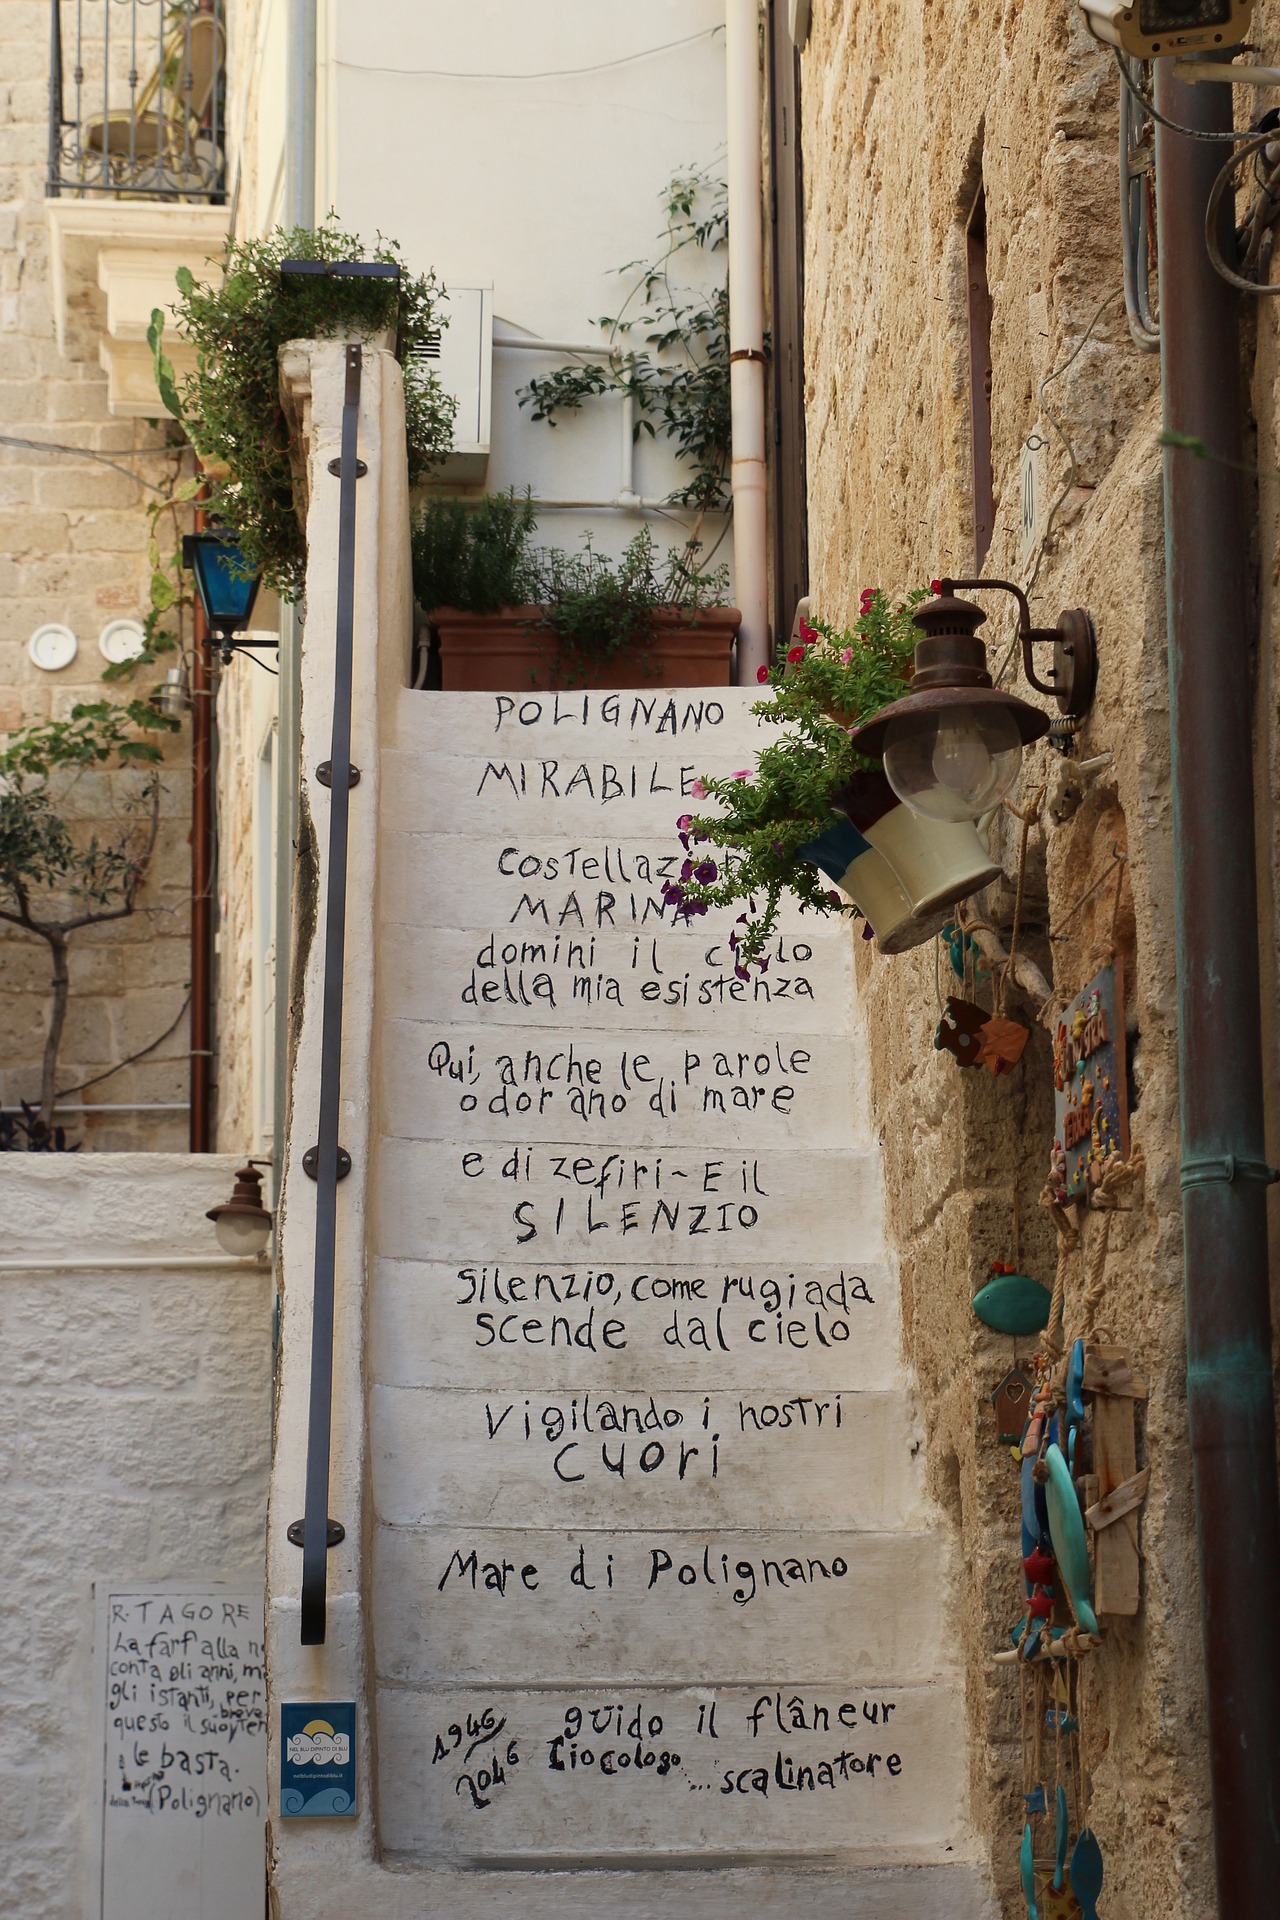 POLIGNANO
MIRABILE
MARINA
domini il
della mia esistenza
Qui, anche le parole
odorano di mare
e di zefiri~ E il
SILENZIO
Silenzio, come rugiada
scende dal cielo
Vigilando i nostri
CUORI
Mare di Polignano
1946 guido il flâneur
2046 Ciocologo... scalinatore
R. TAGORE
La farfalla
conta gli anni,
gli istanti, per
questo il breve
le basta.
(Polignano)
NEL BLU DIPINTO DI BLU
nelbludipintodiblu.it
40